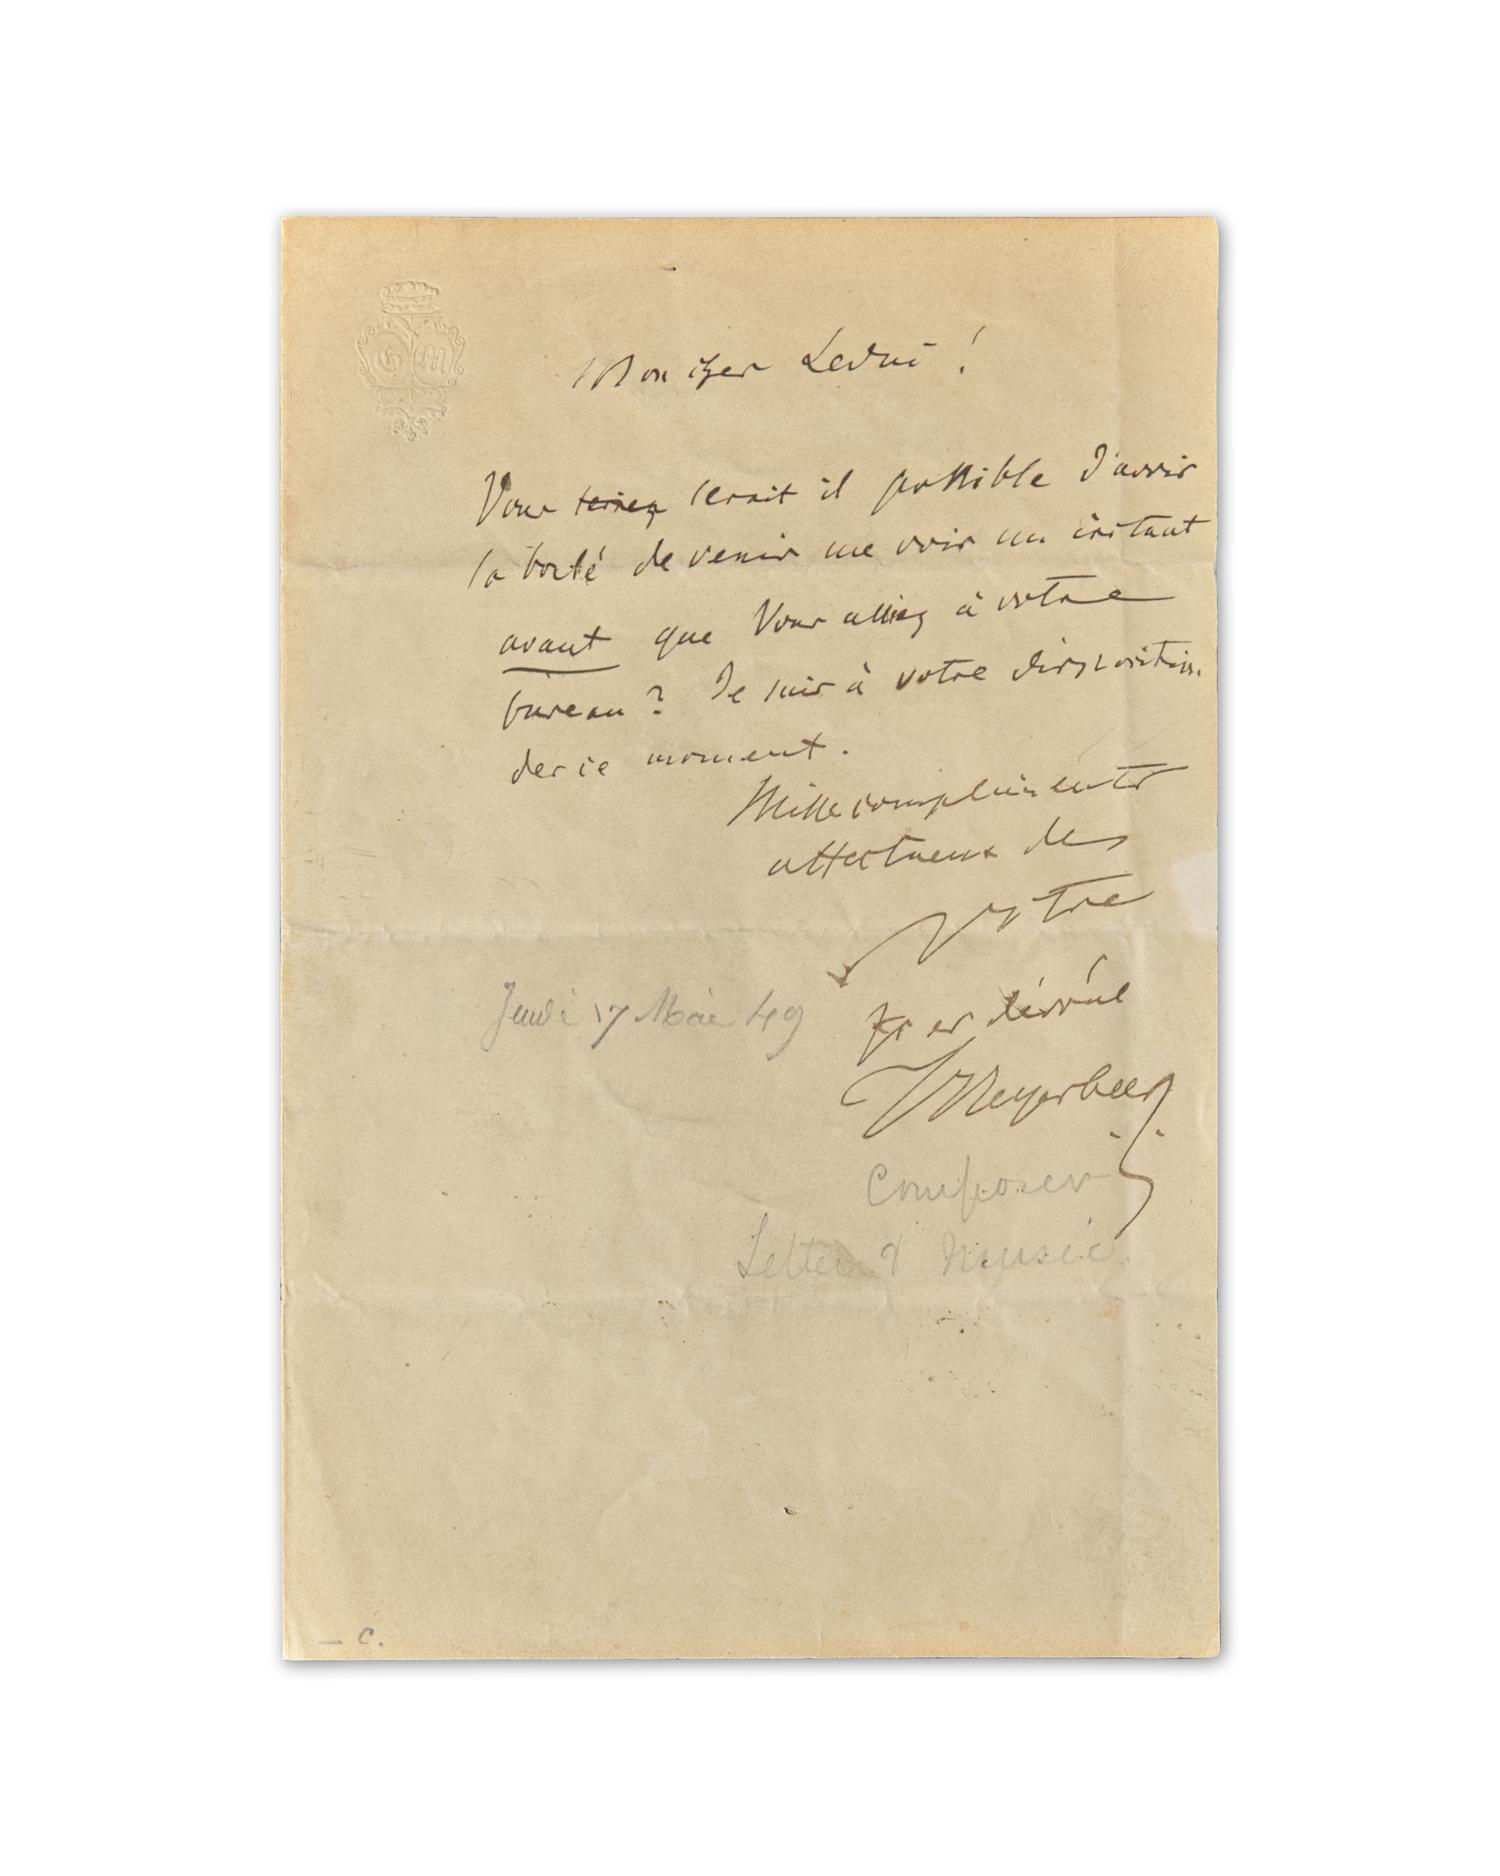 G M
Mon cher Leduc !
Vous seriez serait il possible d'avoir
la bonté de venir me voir un instant
avant que Vous alliez à votre
bureau ? Je suis à votre disposition
des ce moment.
Mille compliments
affectueux de
votre
très dévoué
Meyerbeer
Jeudi 17 Mai 49
Composer
Letter & Music
– C.